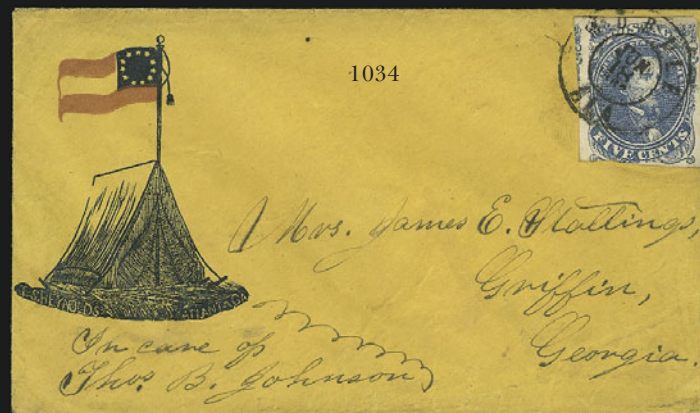 1034
FIVE CENTS
Mrs. James E. Stallings,
Griffin,
Georgia.
In care of
Thos. B. Johnson